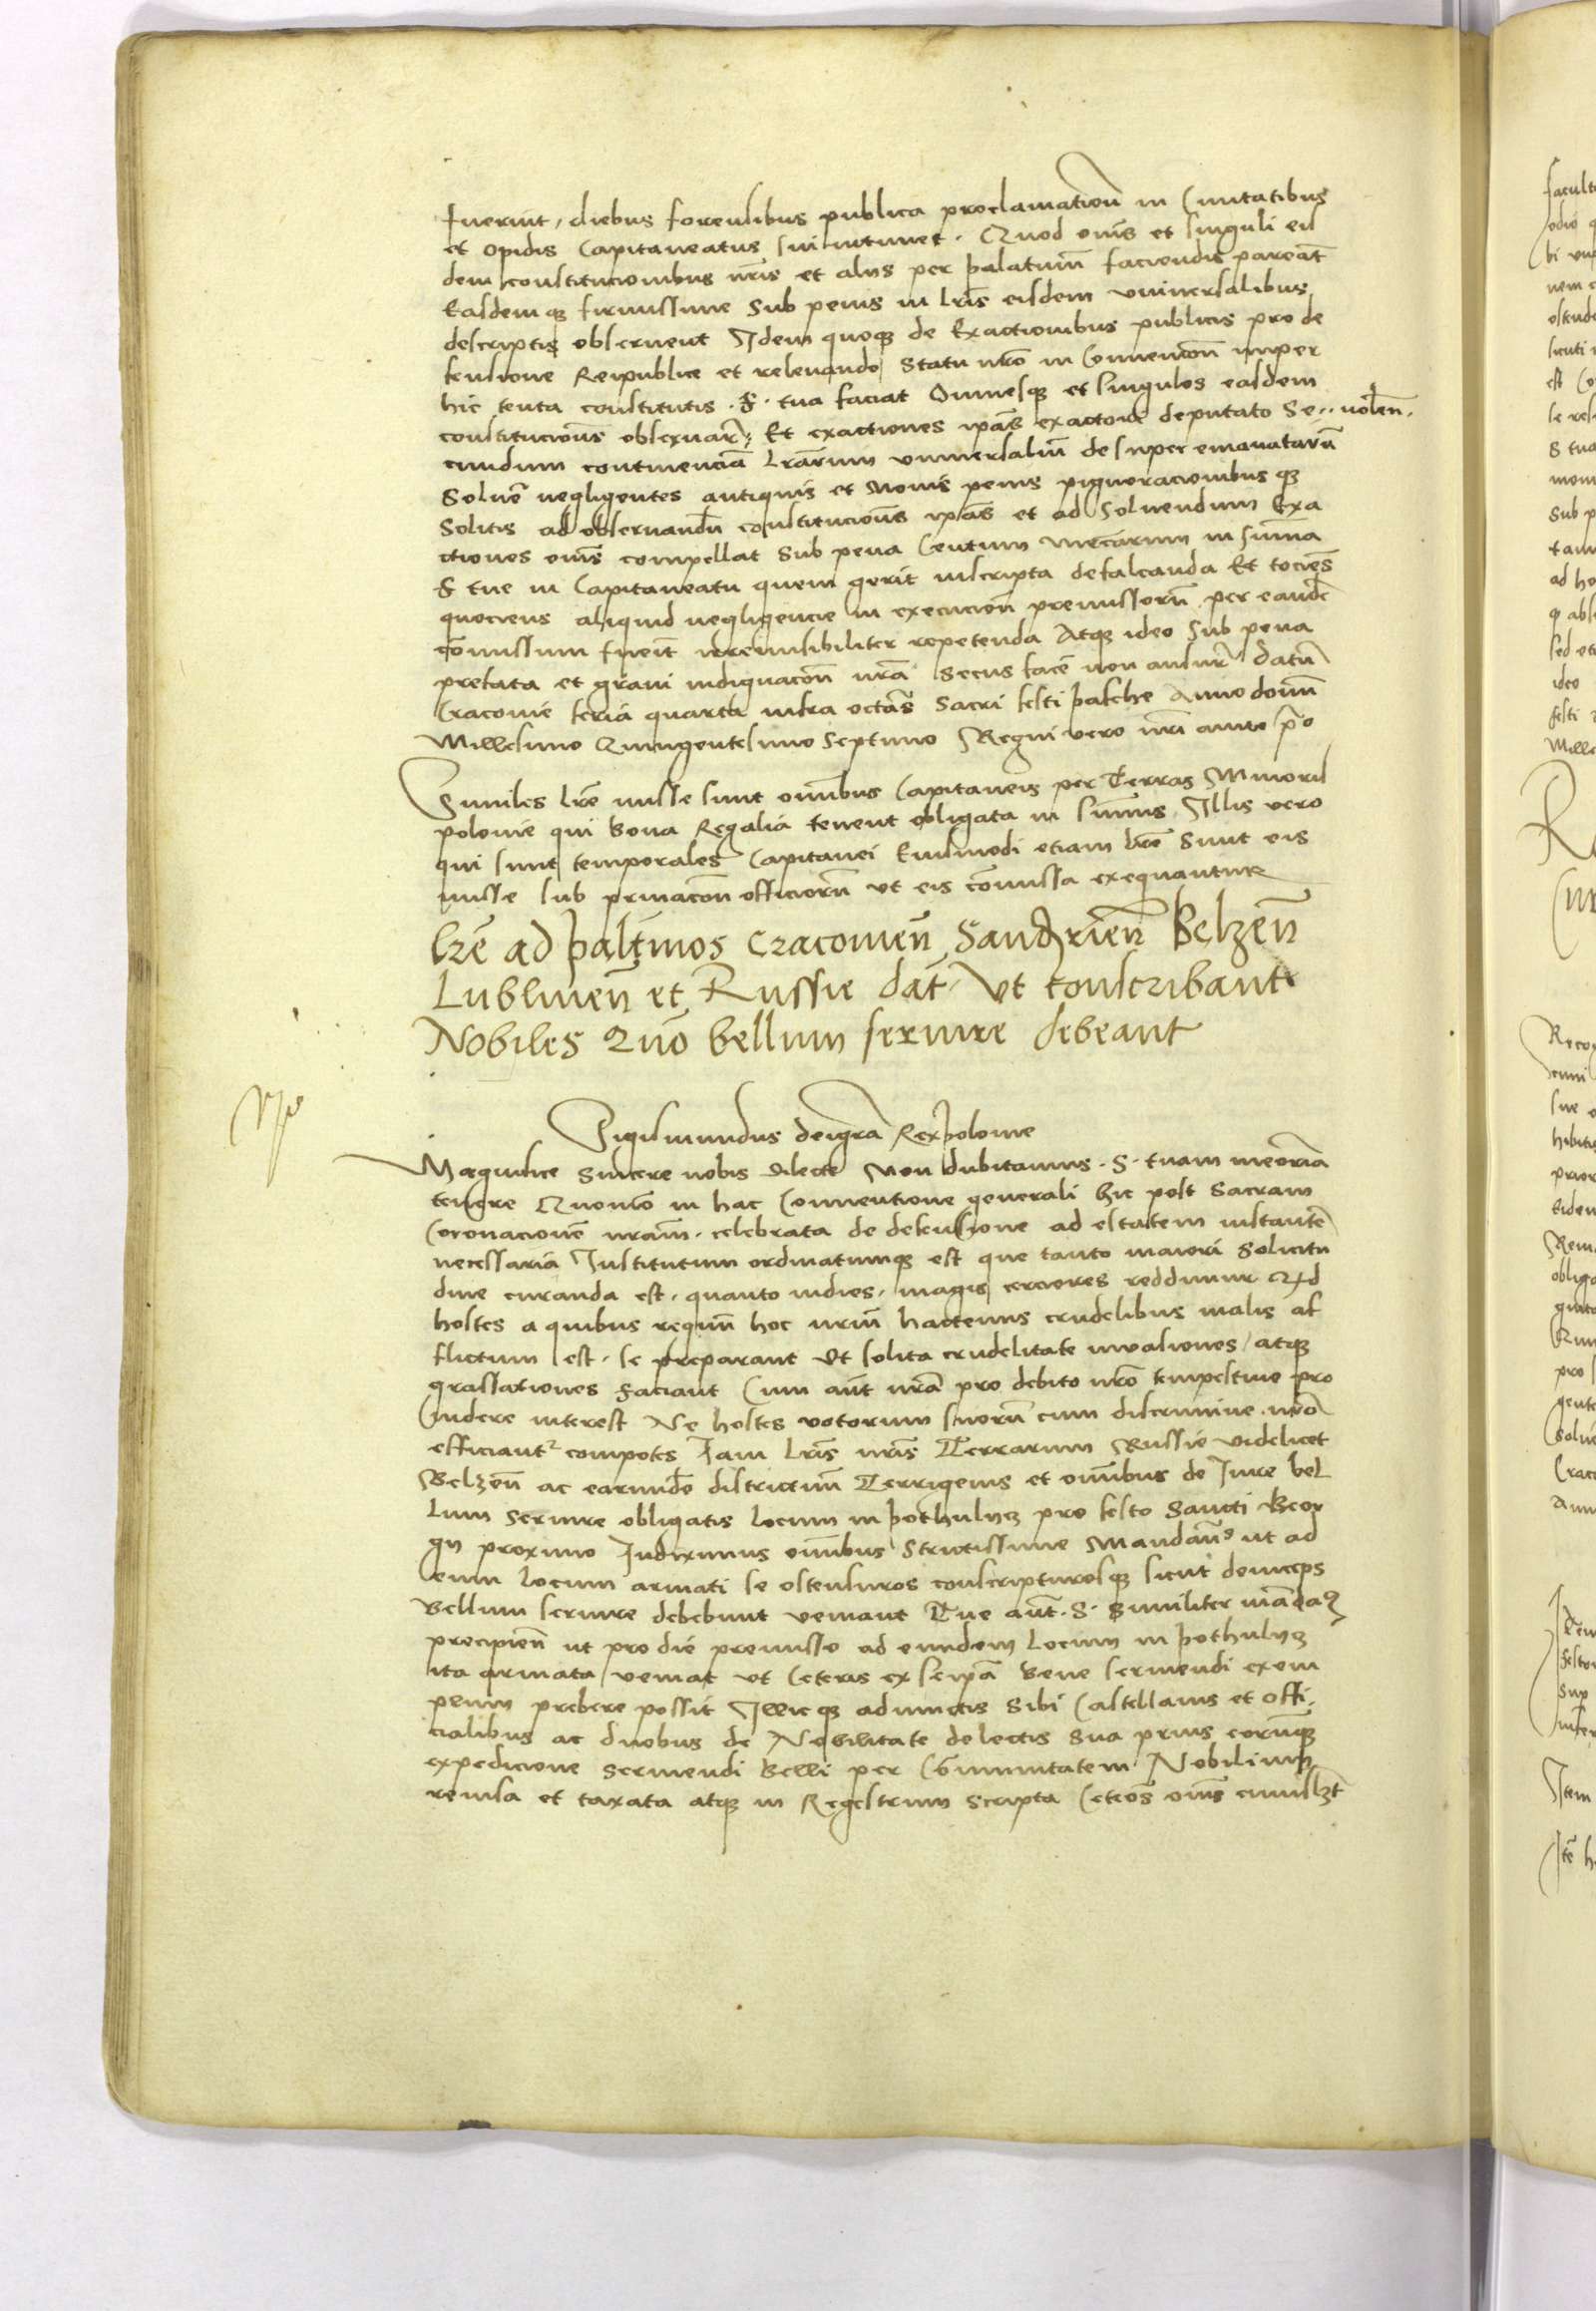 fuerint, diebus forensibus publica proclamationū in Ciuitatibus
et opidis Capitaneatus sui intimet. Quod om̄s et singuli eis
dem constitucionibus nr̄is et alijs per palatinū faciendis pareāt
Easdemqȝ firmissime Sub penis in lr̄is eisdem vniuersalibus
descriptis obseruent Idem quoqȝ de Exactionibus publicis pro de
fensione Reipublice et releuando Statu nr̄o in Conuencōn nuper
hic tenta constitutis. S. tua faciat Omnesqȝ et singulos easdem
constitucionēs obseruarē Et exactiones ip̄as exactori deputato Se.. nolen.
cundum continenciā lr̄arum vniuersaliū desuper emanatarū
Soluē negligentes antiquis et nouis penis pignoracionibusqȝ
Solitis ad obseruandū constitucionēs ip̄as et ad soluendum Exa
ctiones om̄s compellat Sub pena Centum mrcārum in sum̄a
S tue in Capitaneatu quem gerit inscripta defalcanda Et tociēs
quociens aliquid negligencie in execucionē premissorū per eandē
com̄issum fuerit irremissibiliter repetenda Atqȝ ideo sub pena
prefata et graui indignacōn nrā Secus facē non ausurē datū
Cracouie feria quarta infra octās Sacri festi pasche Anno domī
Millesimo Quingentesimo Septimo Regni vero nr̄i anno p̄o
Similes lr̄e misse sunt om̄ibus Capitaneis per Terras Minoris
polonie qui bona Regalia tenent obligata in sum̄is. Illis vero
qui sunt temporales Capitanei Eiusmodi etiam lr̄e Sunt eis
misse sub priuacōn officiorū vt eis com̄issa exequantur
Lr̄e ad palt̄inos Cracouień Sandr̄ień Belzeń
Lublineń et Russie dat̄. Vt conscribant
Nobiles Quō bellum seruire debeant
Sigismundus dei gr̄a Rex polonie
Magnifice Sincere nobis dilecte Non dubitamus. S. tuam meoriā
tenere Quomō in hac Conuentione generali hic post Sacram
Coronacionē nram̄. celebrata de defensione ad estatem instantē
necessaria Institutum ordinatumqȝ est que tanto maiori Solicitu
dine curanda est. quanto indies. magis cerciores reddimur Qd
hostes a quibus regnū hoc nrūm hactenus crudelibus malis af
flictum est. se preparant Vt solita crudelitate inuasiones, atqȝ
grassationes faciant Cum aut̄ nrā pro debito nr̄o tempestiue pro
uidere interest Ne hostes votorum suorū cum discrimine. nr̄o
efficiant᷑ compotes Jam lr̄is nr̄is Terrarum Russie videlicet
Belzeń ac earundē districtuū Terrigenis et om̄ibus de Jure bel
lum seruire obligatis locum in pothulijcȝ pro festo Sancti Geor
gij proximo Indiximus om̄ibus Strictissime Mandan̄s ut ad
eum locum armati se ostensuros conscripturosqȝ sicut deinceps
Bellum seruire debebunt veniant Tue aut̄. S. Similiter mādaȝ
precipień ut pro die premisso ad eundem locum in pothulijcȝ
ita armata veniat vt Ceteris ex se ip̄a bene seruiendi exem
plum prebere possit Illicqȝ adiunctis Sibi Castellanis et offi.
cialibus ac duobus de Nobilitate delectis Sua prius eorumqȝ
expedicione Seruiendi Belli per Co͞munitatem Nobilium
reuisa et taxata atqȝ in Regestrum Scripta Ceteōs om̄s cuiusl̄ȝt